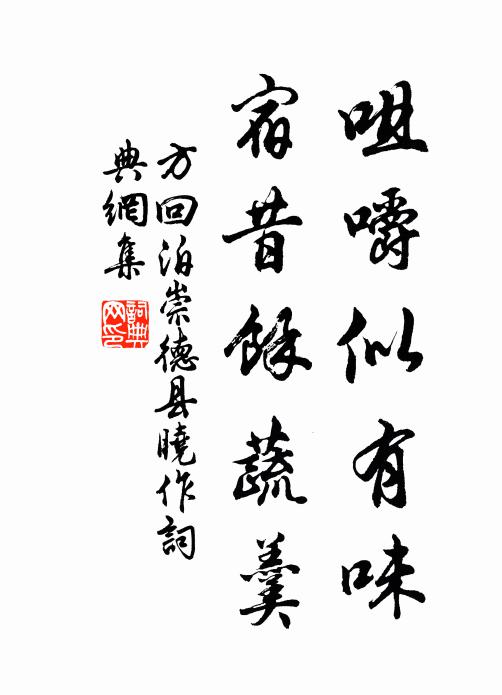 咀嚼似有味
宿昔餘蔬羹
方回泊崇德县曉作詞
典網集
詞典網印